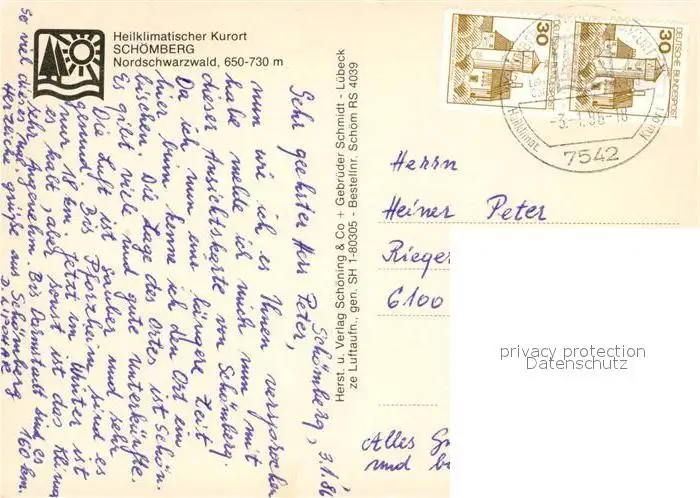 Heilklimatischer Kurort
SCHÖMBERG
Nordschwarzwald, 650-730 m
Schömberg, 3.1.86
Sehr geehrter Herr Peter,
nun wie ich es Ihnen versprochen
habe melde ich mich nun mit
dieser Ansichtskarte von Schömberg.
Da ich nun ein längere Zeit
hier bin kenne ich den Ort ein
bischen. Die Lage des Ortes ist schön.
Es gibt viele und gute Unterkünfte.
Die Luft ist sauber und sehr
gesund. Bis Pforzheim sind es
nur 18 km. Jetzt im Winter ist
es kalt, aber sonst ist das Klima
sehr Angenehm. Bis Darmstadt sind es
160 km.
So viel dieses mal.
Herzliche grüße aus Schömberg
Herst. u. Verlag Schöning & Co + Gebrüder Schmidt - Lübeck
ze Luftaufn., gen. SH 1-80305 - Bestellnr. Schöm RS 4039
30
DEUTSCHE BUNDESPOST
30
DEUTSCHE BUNDESPOST
Heilklimat. Kurort
-3.-1.86-18
7542
Herrn
Heiner Peter
Rieger
6100
Alles
und
privacy protection
Datenschutz